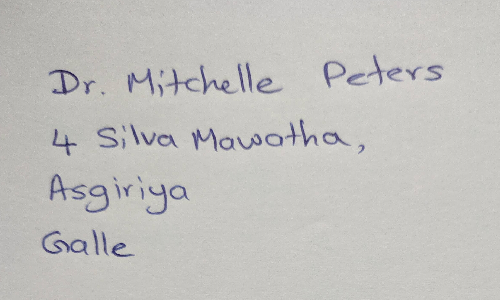 Dr. Mitchelle Peters
4 Silva Mawatha,
Asgiriya
Galle